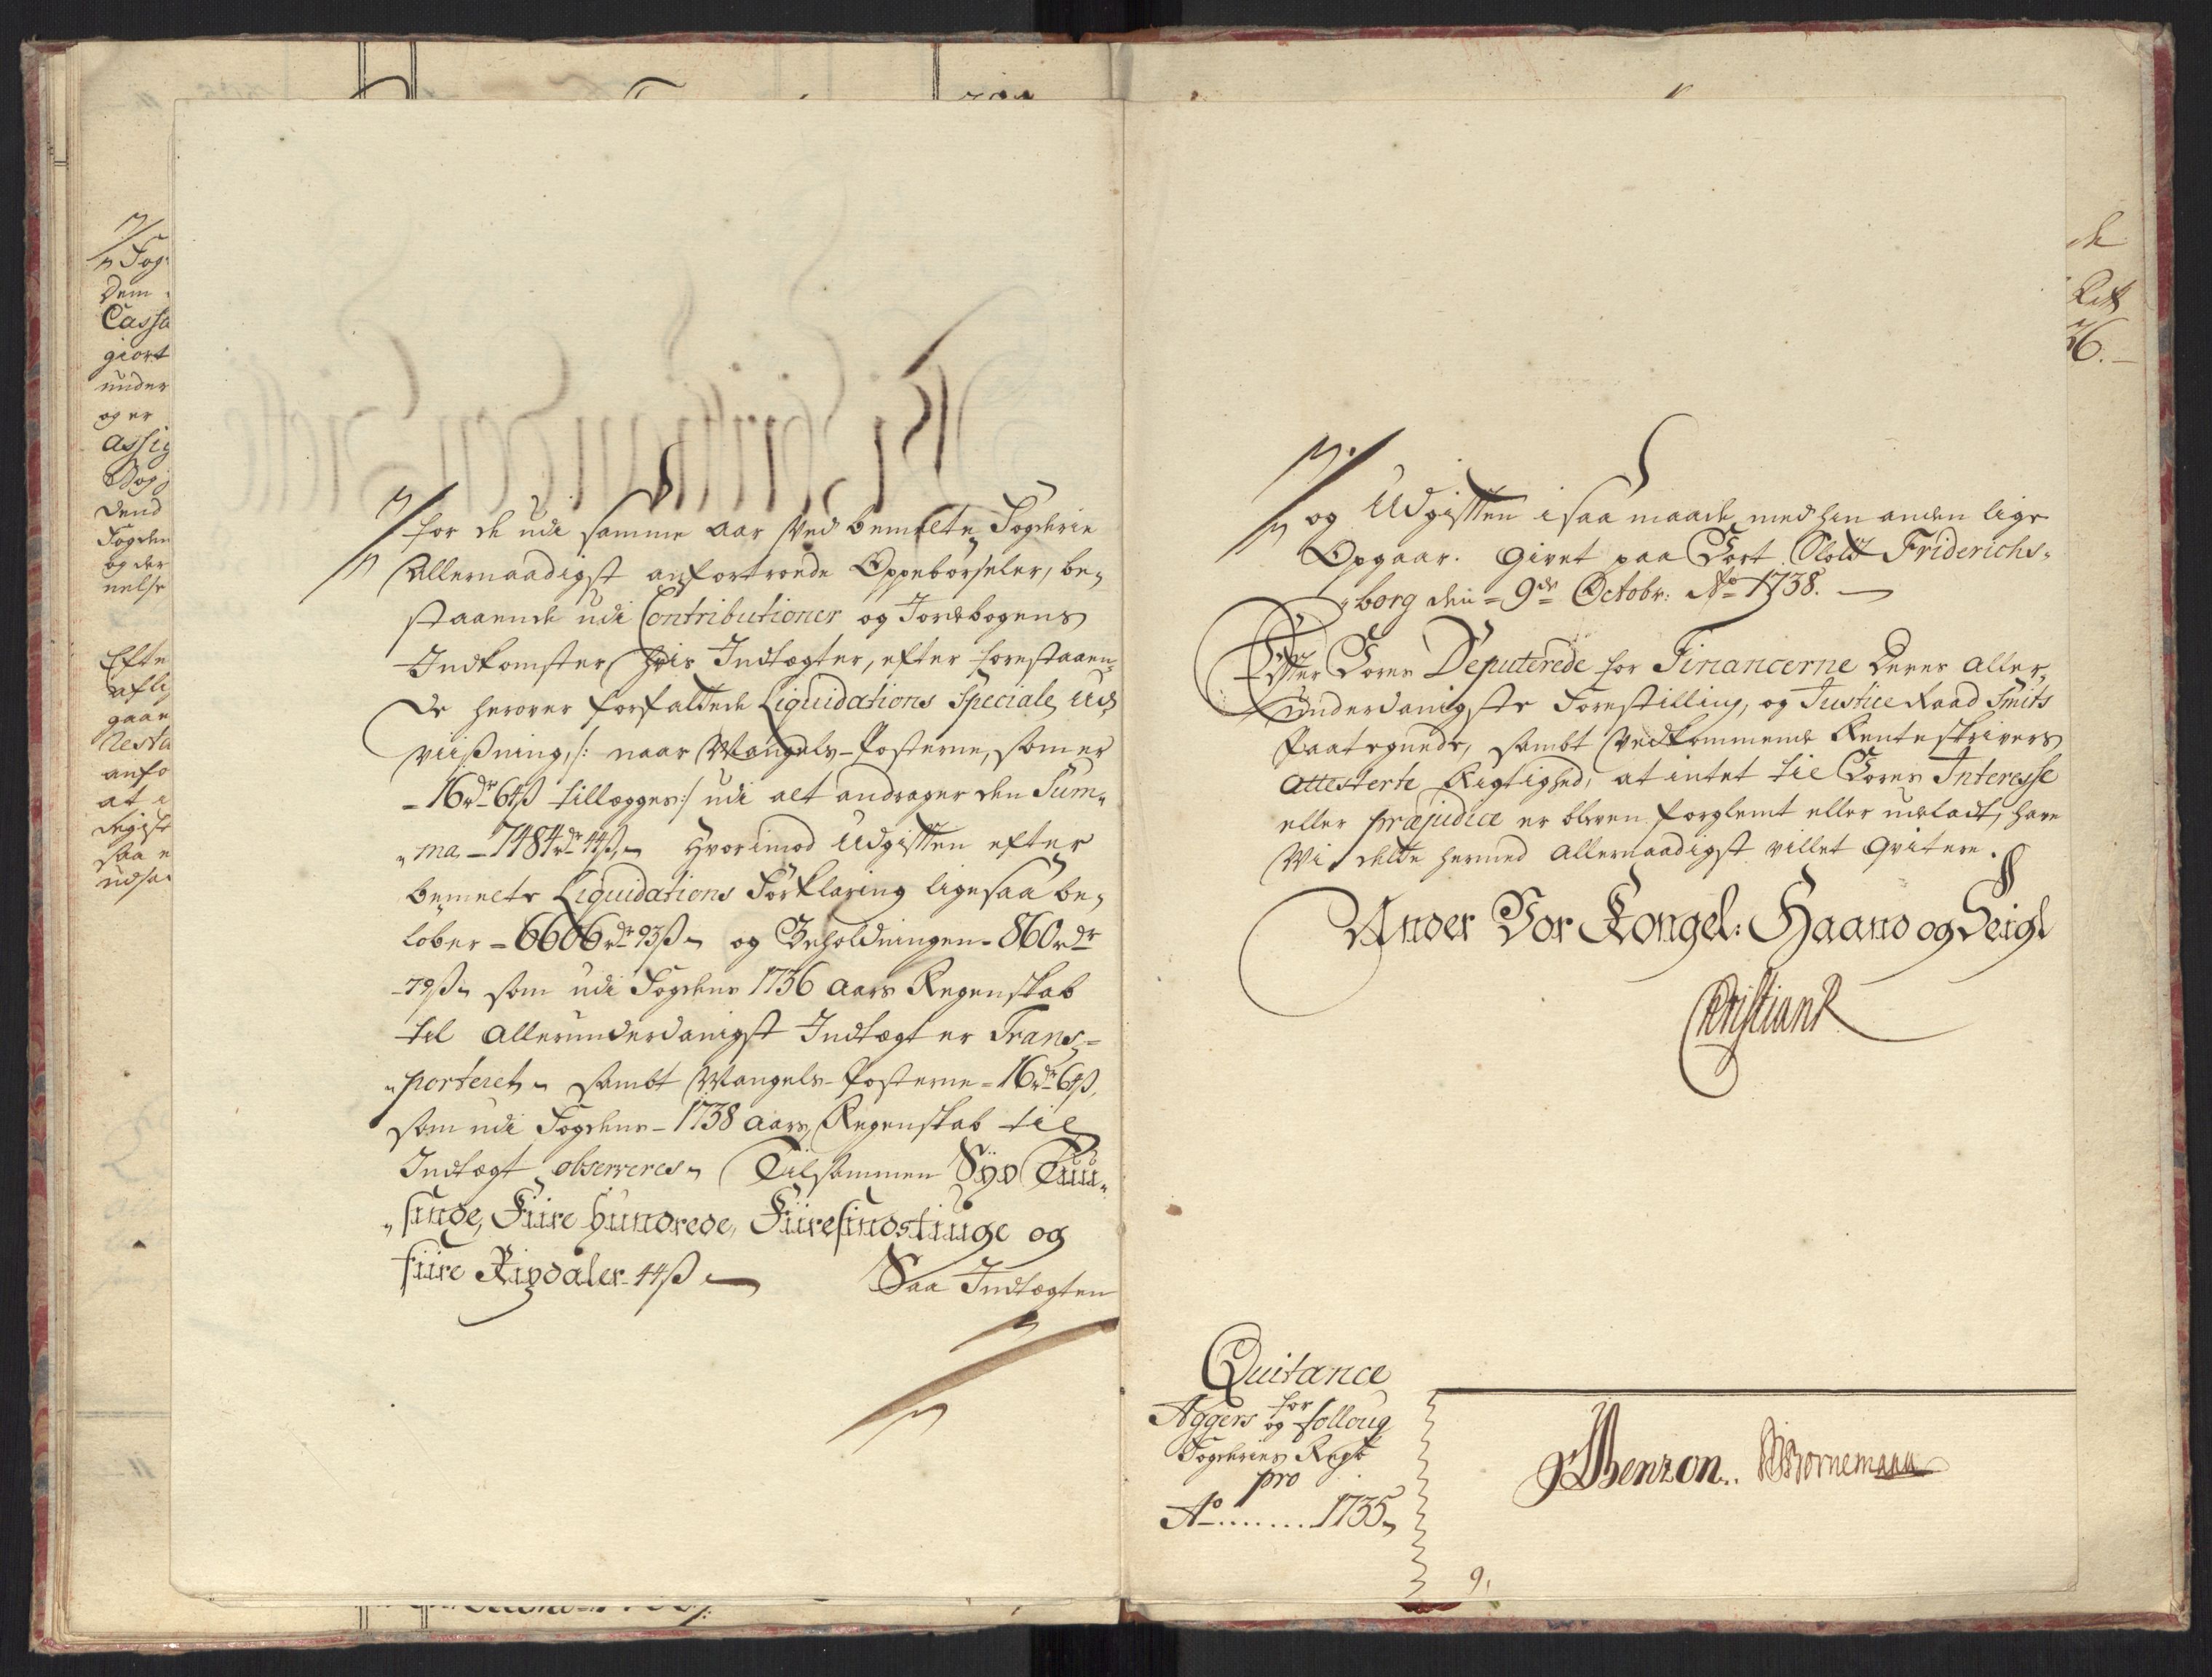 for de udi samme Aar ved bemelte Fogderie
Allernaadigst anfortroede Oppebørseler, be-
staaende udi Contributioner og Jordebogens
Indkomster, hvis Indtægter, efter forestaaen-
de herover forfattede Liquidations Speciale Ud-
viisning, /: naar Mangels-Posterne, som er
- 16 rdr 64 ß tillægges :/ udi alt andrager den Sum-
"ma, - 7484 rdr 44 ß, - Hvorimod Udgifften efter
bemelte Liquidations Forklaring ligesaa be-
løber - 6606 rdr 93 ß - og Beholdningen - 860 rdr
- 79 ß - som udi Fogdens 1736 Aars Regenskab
til Allerunderdanigst Indtægt er Trans-
"porteret - sambt Mangels-Posterne - 16 rdr 64 ß,
som udi Fogdens - 1738 Aars Regenskab til
Indtægt observeres - Tilsammen Syv Tuu-
"sinde, Fiire hundrede, Fiiresindstiuge og
fiire Rixdaler 44 ß -
Saa Indtægten
og Udgifften i saa maade med hin anden lige
Opgaar. Givet paa Vort Slott Friderichs-
"borg den - 9de Octobr: Ao 1738. -
Efter Vores Deputerede for Financerne Deres aller-
underdanigste Forestilling, og Justice Raad Smits
Paategnede, sambt Vedkommende Renteskrivers
Attesterte Rigtighed, at intet til Vores Interesse
eller præjudice er bleven forglemt eller udeladt, have
Wi dette hermed Allernaadigst villet Qvitere.
Under Vor Kongel: Haand og Seigl
Christian R
Quitance
for
Aggers og Folloug
Fogderies Regsk
pro
Ao ........ 1735,
Benzon.. Bornemann
9,
Fog
Dem
Cassa
giort
under
og er
assig
dend
Fogden
og der
nelse
Efte
afli
gaae
Resta
anfo
at i
Regist
saa e
udsa
de
36. -